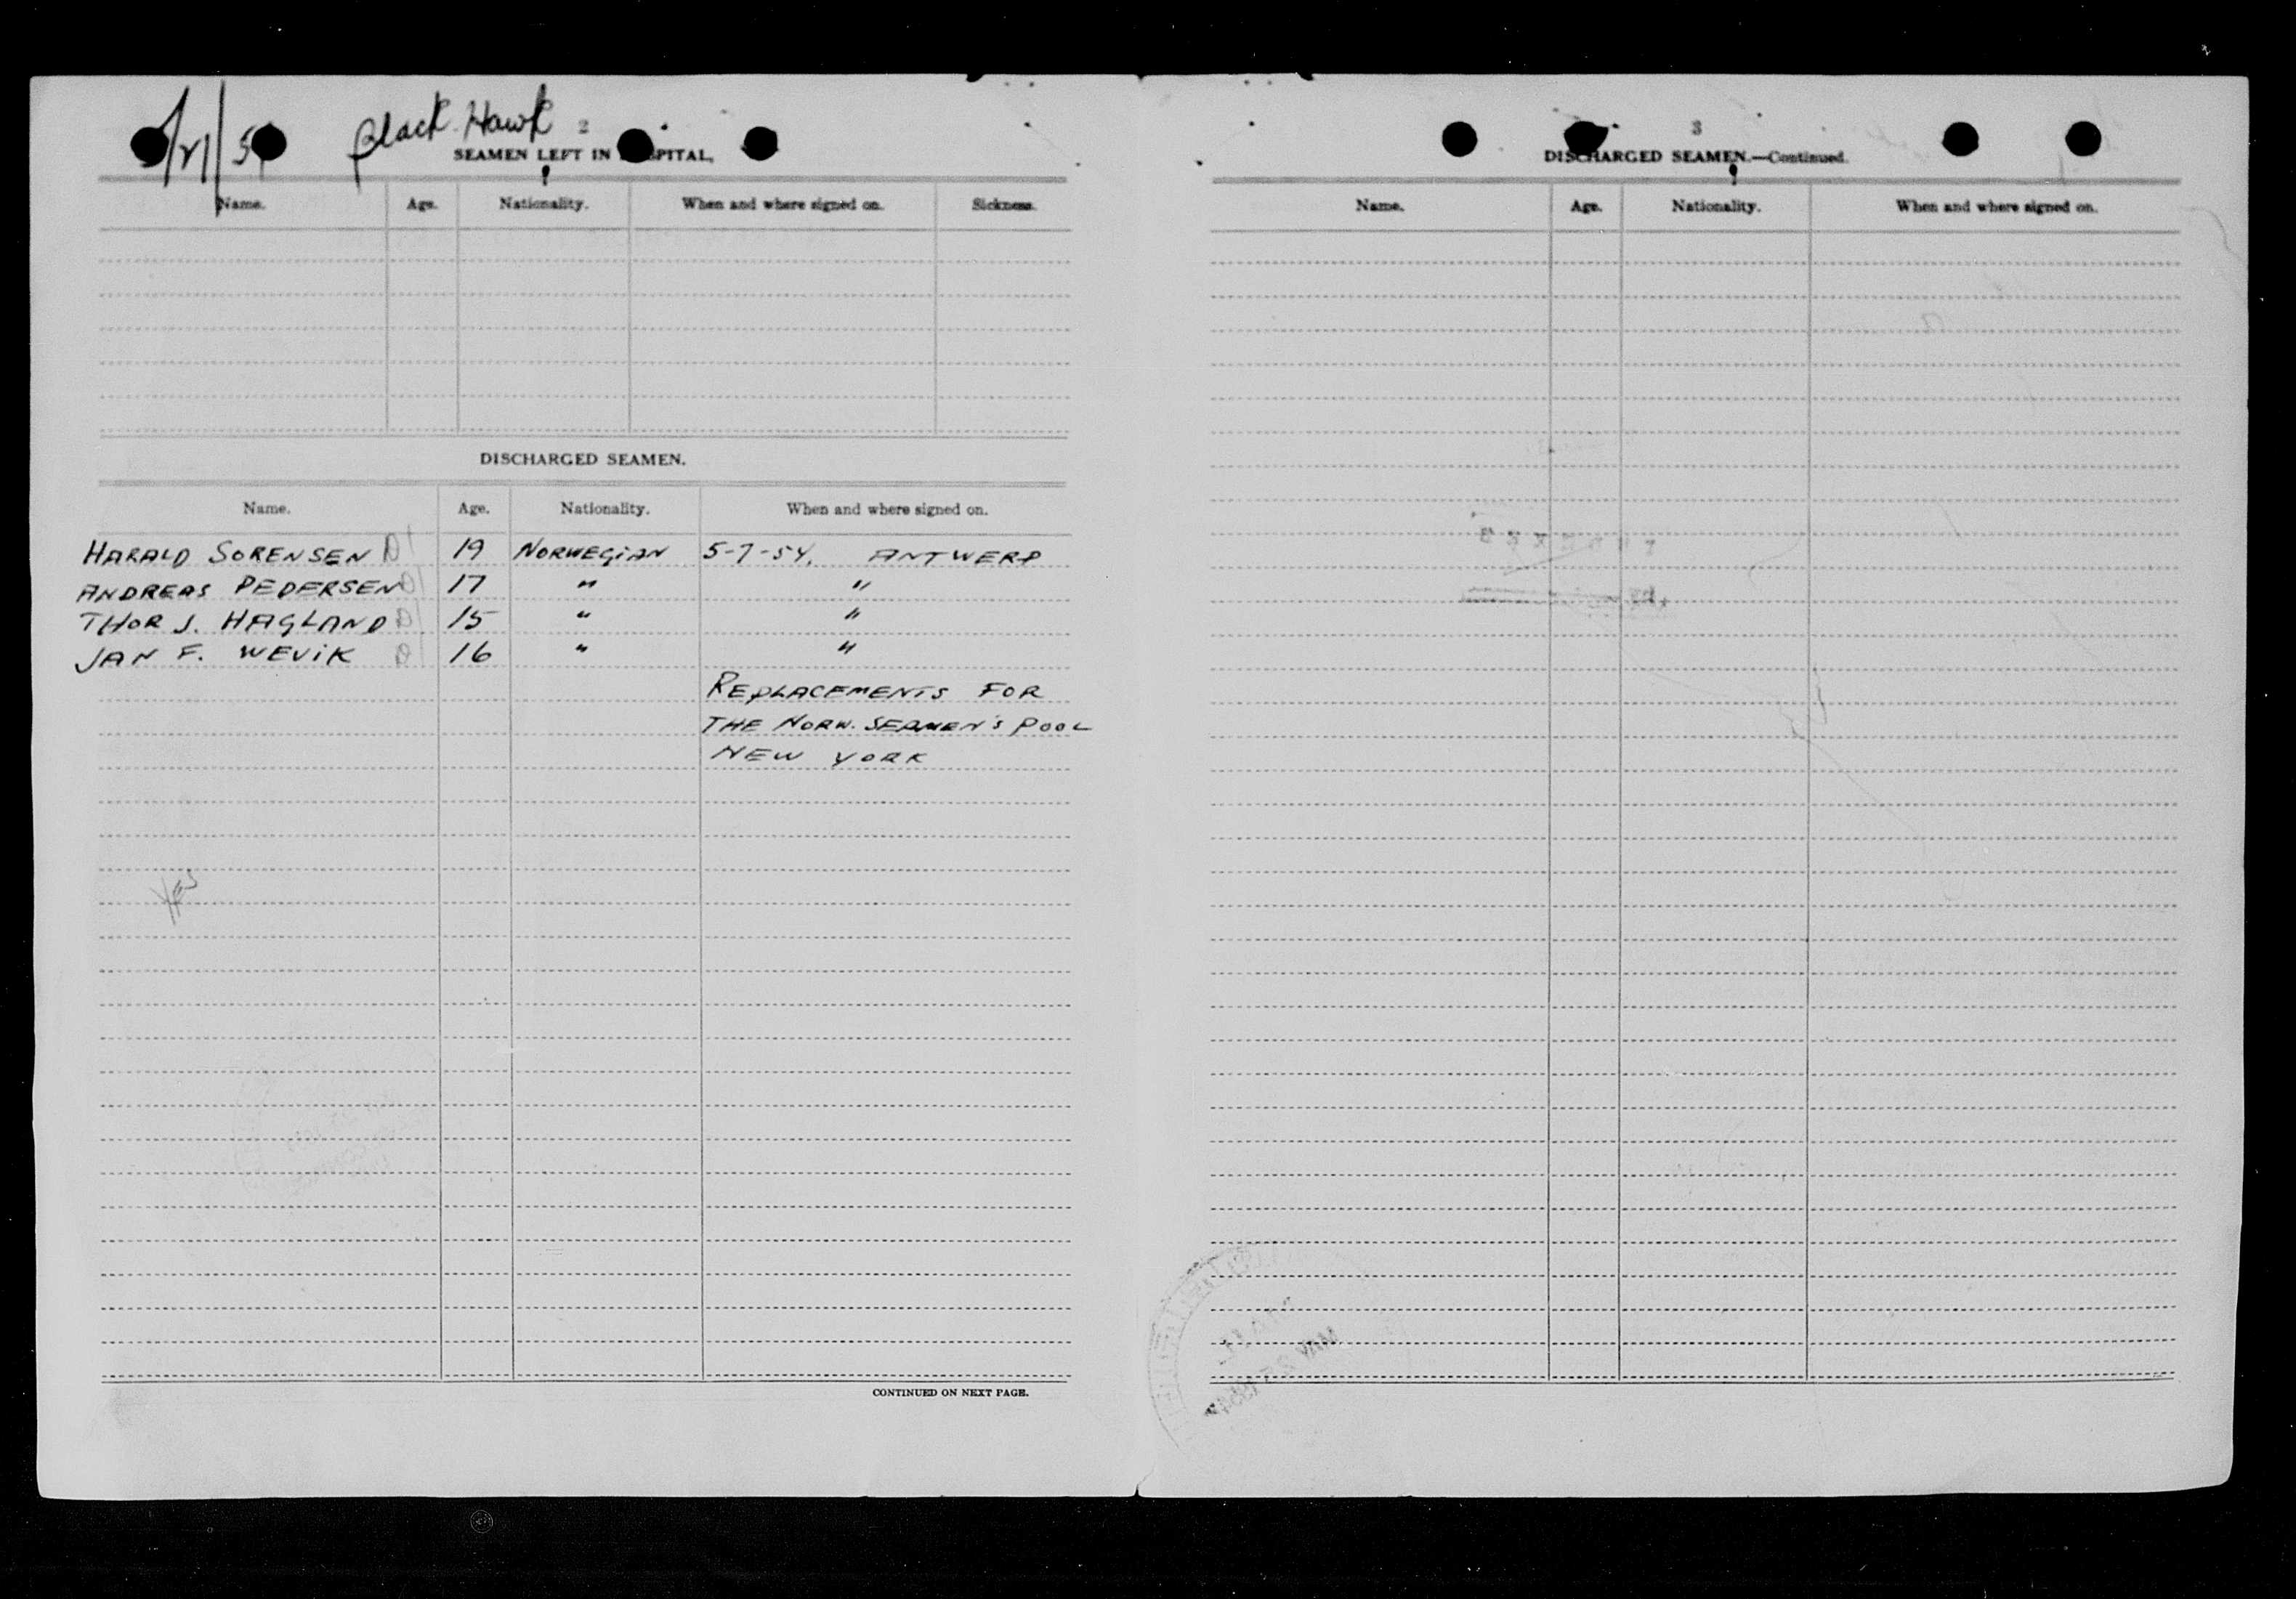 Black Hawk 2
SEAMEN LEFT IN
Name. Age. Nationality. When and where signed on. Sickness.
DISCHARGED SEAMEN.
Name. Age. Nationality. When and where signed on.
HARALD SORENSEN D1 19 NORWEGIAN 5-7-54. ANTWERP
ANDREAS PEDERSEN D1 17 " "
THOR J. HAGLAND D1 15 " "
JAN F. WEVIK D1 16 " "
REPLACEMENTS FOR
THE NORW. SEAMEN'S POOL
NEW YORK
Yes
CONTINUED ON NEXT PAGE.
3
DISCHARGED SEAMEN.—Continued.
Name. Age. Nationality. When and where signed on.